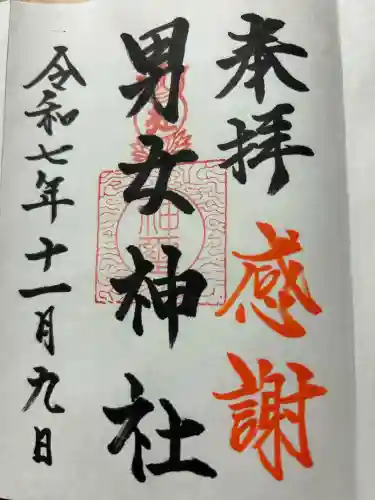 奉拝 感謝
男女神社
令和七年十一月九日